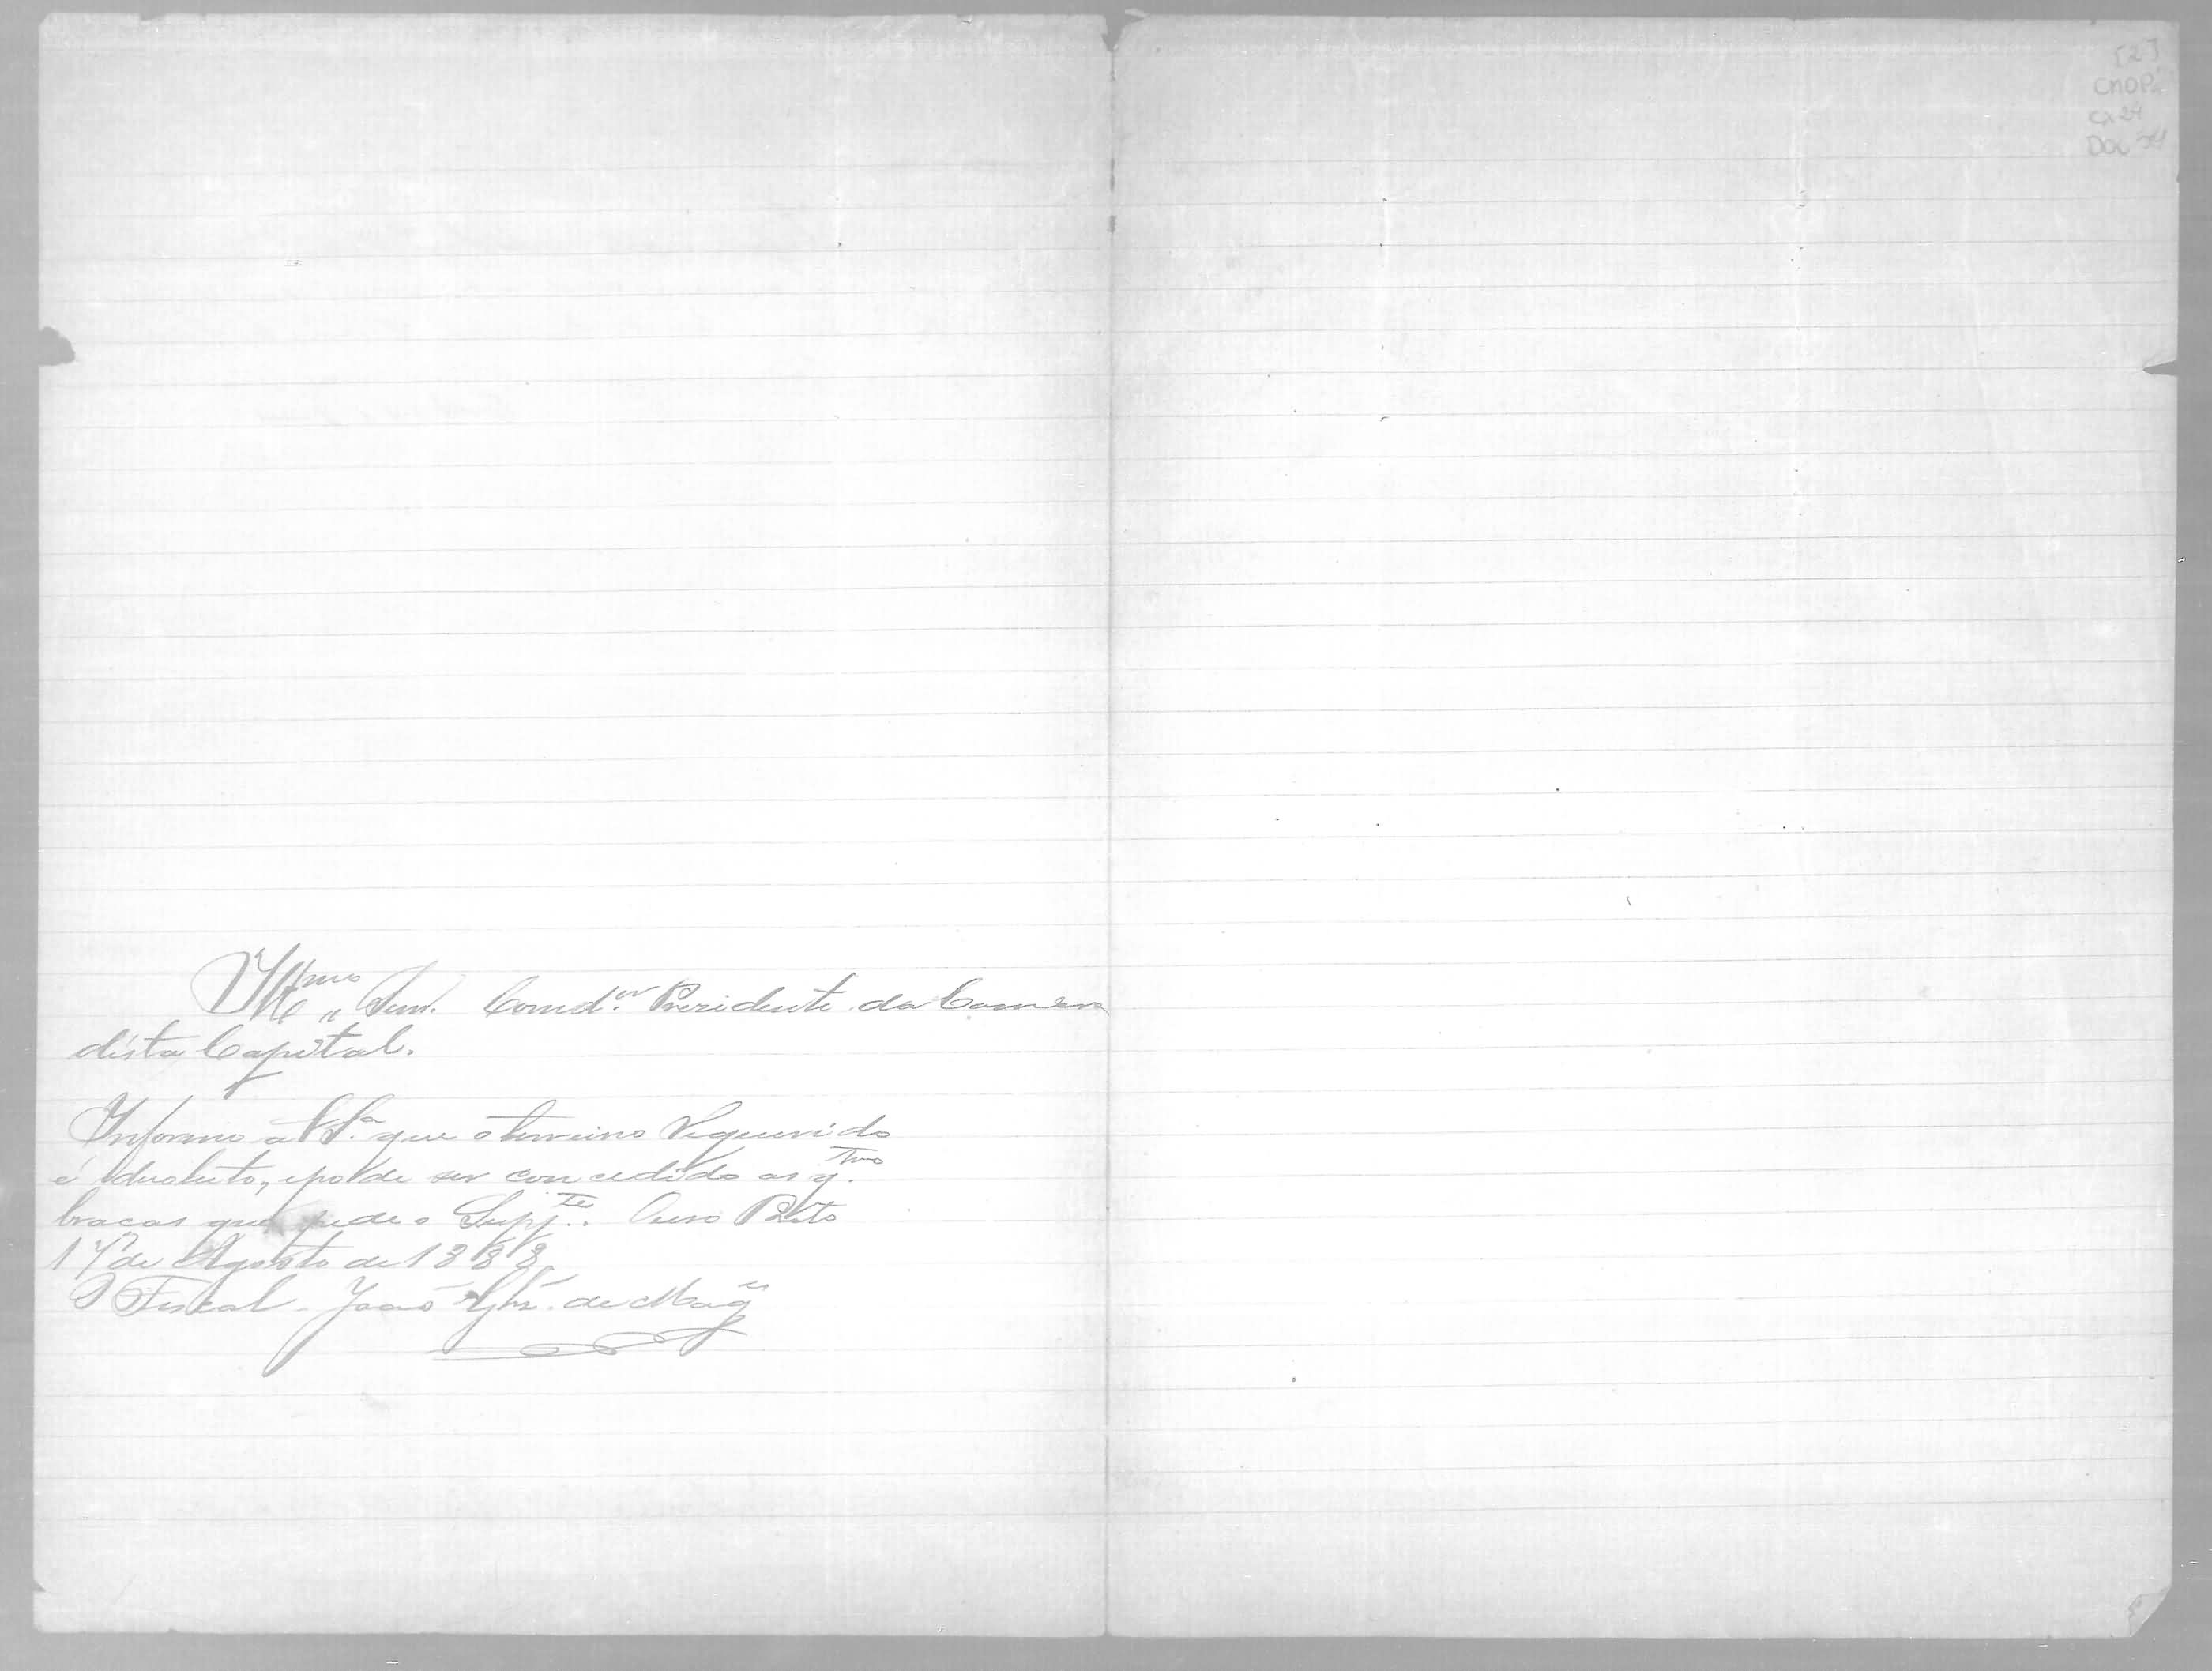 [2]
CMOP
Cx 24
Doc
Ill.mo Snr. Comd.or Prezidente da Camera
désta Capital.
Informo a V S.a que o terreino Requerido
é devoluto, e pode ser concedido as q.tro
bracas que pede o Supp.te. Ouro Preto
17 de Agosto de 1888.
O Fiscal João de Mag.es